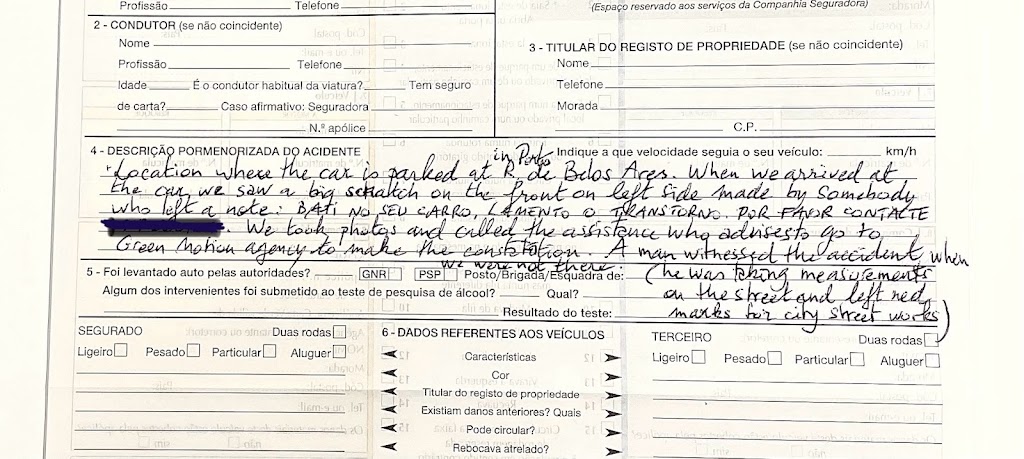 Profissão Telefone
(Espaço reservado aos serviços da Companhia Seguradora)
2 - CONDUTOR (se não coincidente)
Nome
Profissão Telefone
Idade É o condutor habitual da viatura? Tem seguro
de carta? Caso afirmativo: Seguradora
N.º apólice
3 - TITULAR DO REGISTO DE PROPRIEDADE (se não coincidente)
Nome
Telefone
Morada
C.P.
4 - DESCRIÇÃO PORMENORIZADA DO ACIDENTE Indique a que velocidade seguia o seu veículo: km/h
in Porto
Location where the car is parked at R. de Belos Ares. When we arrived at
the car we saw a big scratch on the front on left side made by somebody
who left a note: BATI NO SEU CARRO, LAMENTO O TRANSTORNO. POR FAVOR CONTACTE
. We took photos and called the assistence who advises to go to
Green Motion agency to make the constatation. A man witnessed the accident, when
we were not there.
(he was taking measurements
on the street and left red
marks for city street works)
5 - Foi levantado auto pelas autoridades? GNR PSP Posto/Brigada/Esquadra de:
Algum dos intervenientes foi submetido ao teste de pesquisa de álcool? Qual?
Resultado do teste:
SEGURADO Duas rodas
Ligeiro Pesado Particular Aluguer
6 - DADOS REFERENTES AOS VEÍCULOS
Características
Cor
Titular do registo de propriedade
Existiam danos anteriores? Quais
Pode circular?
Rebocava atrelado?
TERCEIRO Duas rodas
Ligeiro Pesado Particular Aluguer